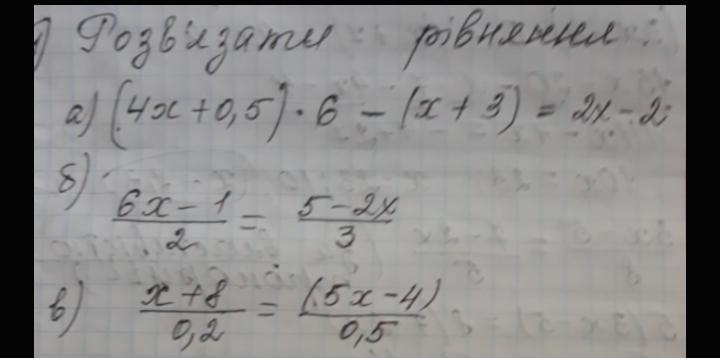 1) Розв'язати рівняння:
а) (4x+0,5)·6 - (x+3) = 2x-2
б) (6x-1)/2 = (5-2x)/3
в) (x+8)/0,2 = (5x-4)/0,5